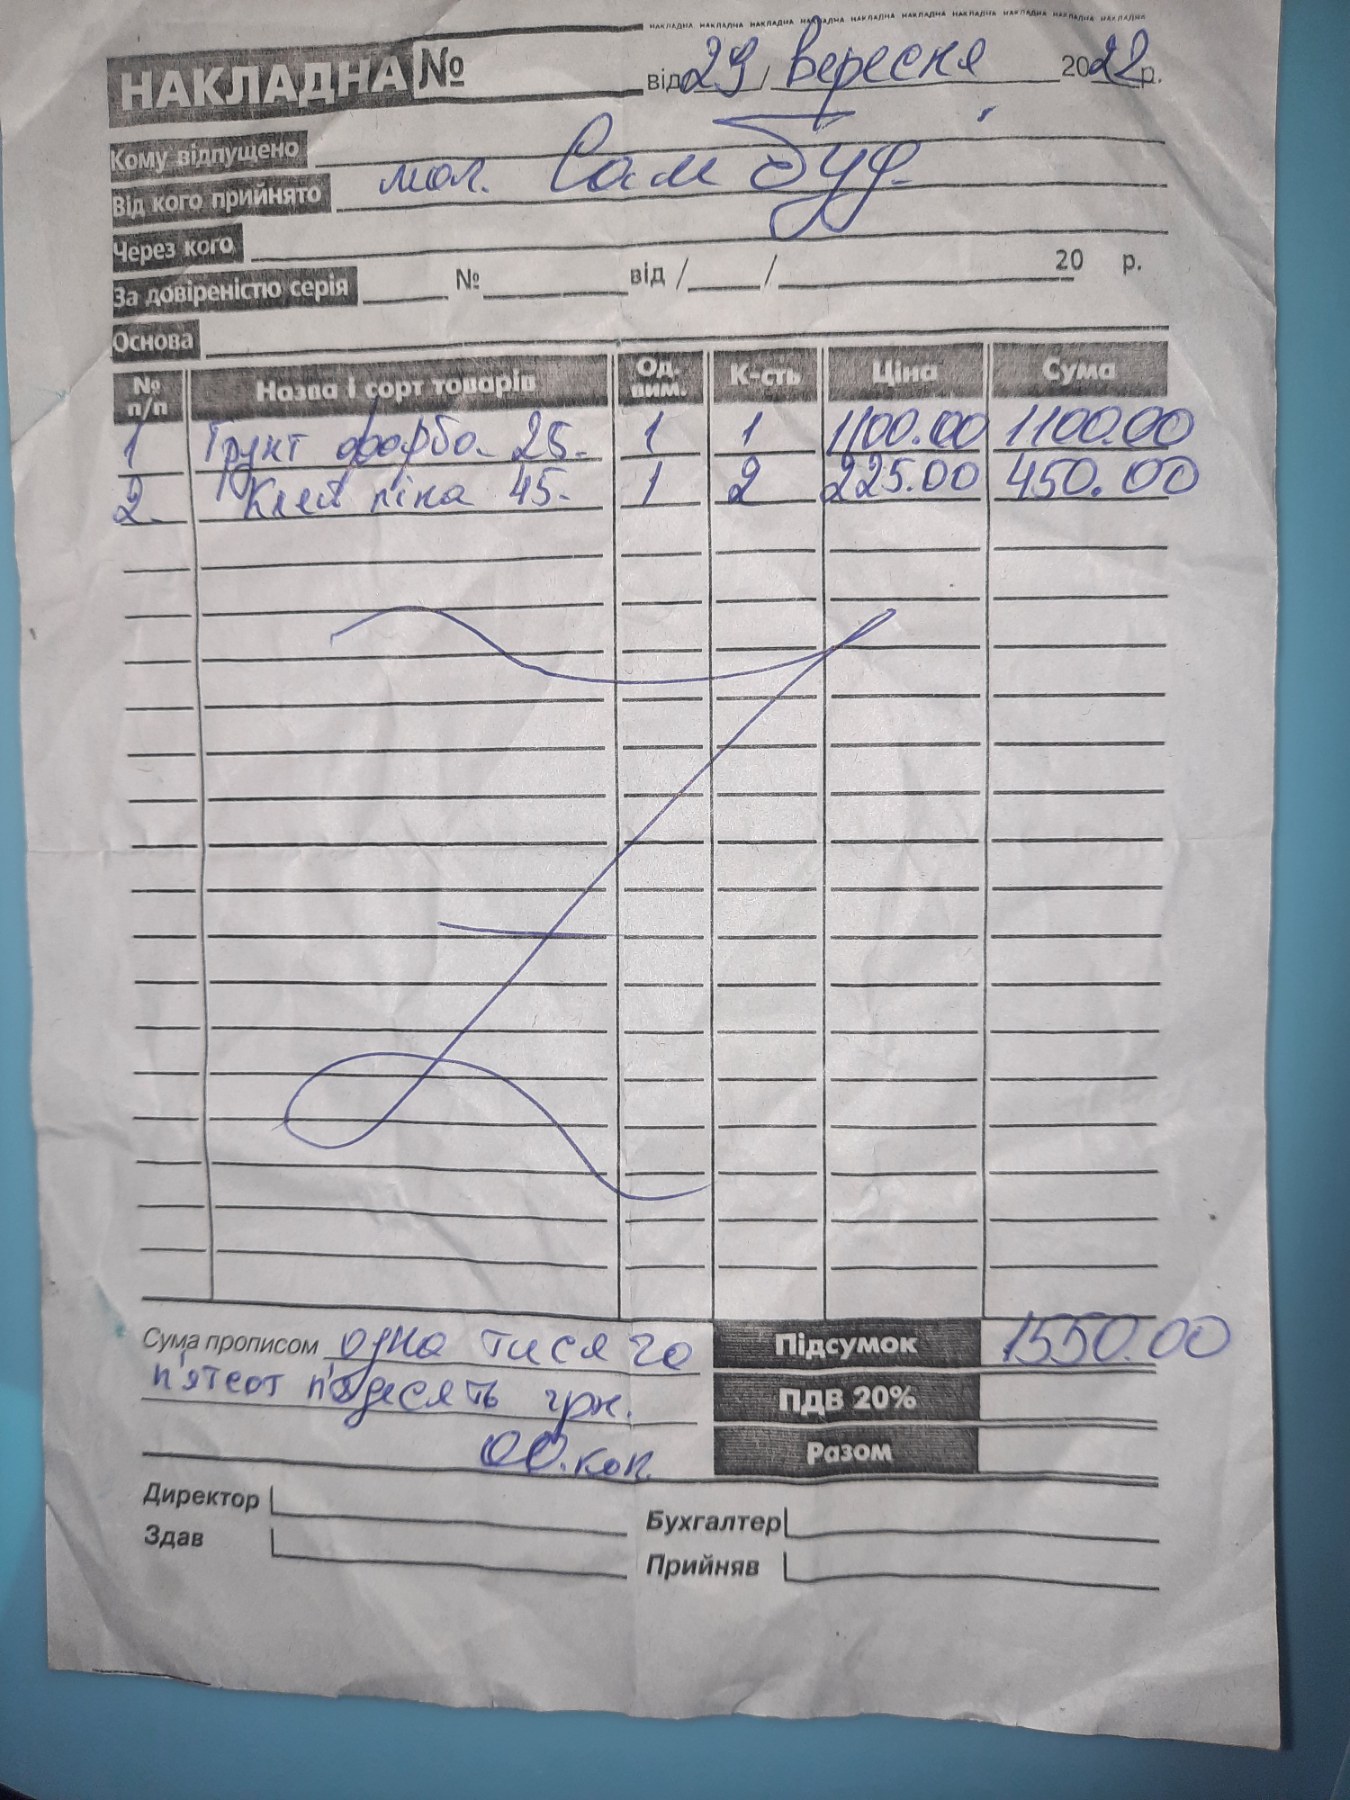 НАКЛАДНА НАКЛАДНА НАКЛАДНА НАКЛАДНА НАКЛАДНА НАКЛАДНА НАКЛАДНА НАКЛАДНА НАКЛАДНА НАКЛАДНА
НАКЛАДНА № від 29 / вересня 2022р.
Кому відпущено
Від кого прийнято маг. Сам Буд.
Через кого
За довіреністю серія № від / / 20 р.
Основа
№ п/п Назва і сорт товарів Од. вим. К-сть Ціна Сума
1 Грунт фарба 25. 1 1 1100.00 1100.00
2. Клей піна 45. 1 2 225.00 450.00
Сума прописом одна тисяча Підсумок 1550.00
п'ятсот п'ядесять грн. ПДВ 20%
00.коп. Разом
Директор Бухгалтер
Здав Прийняв